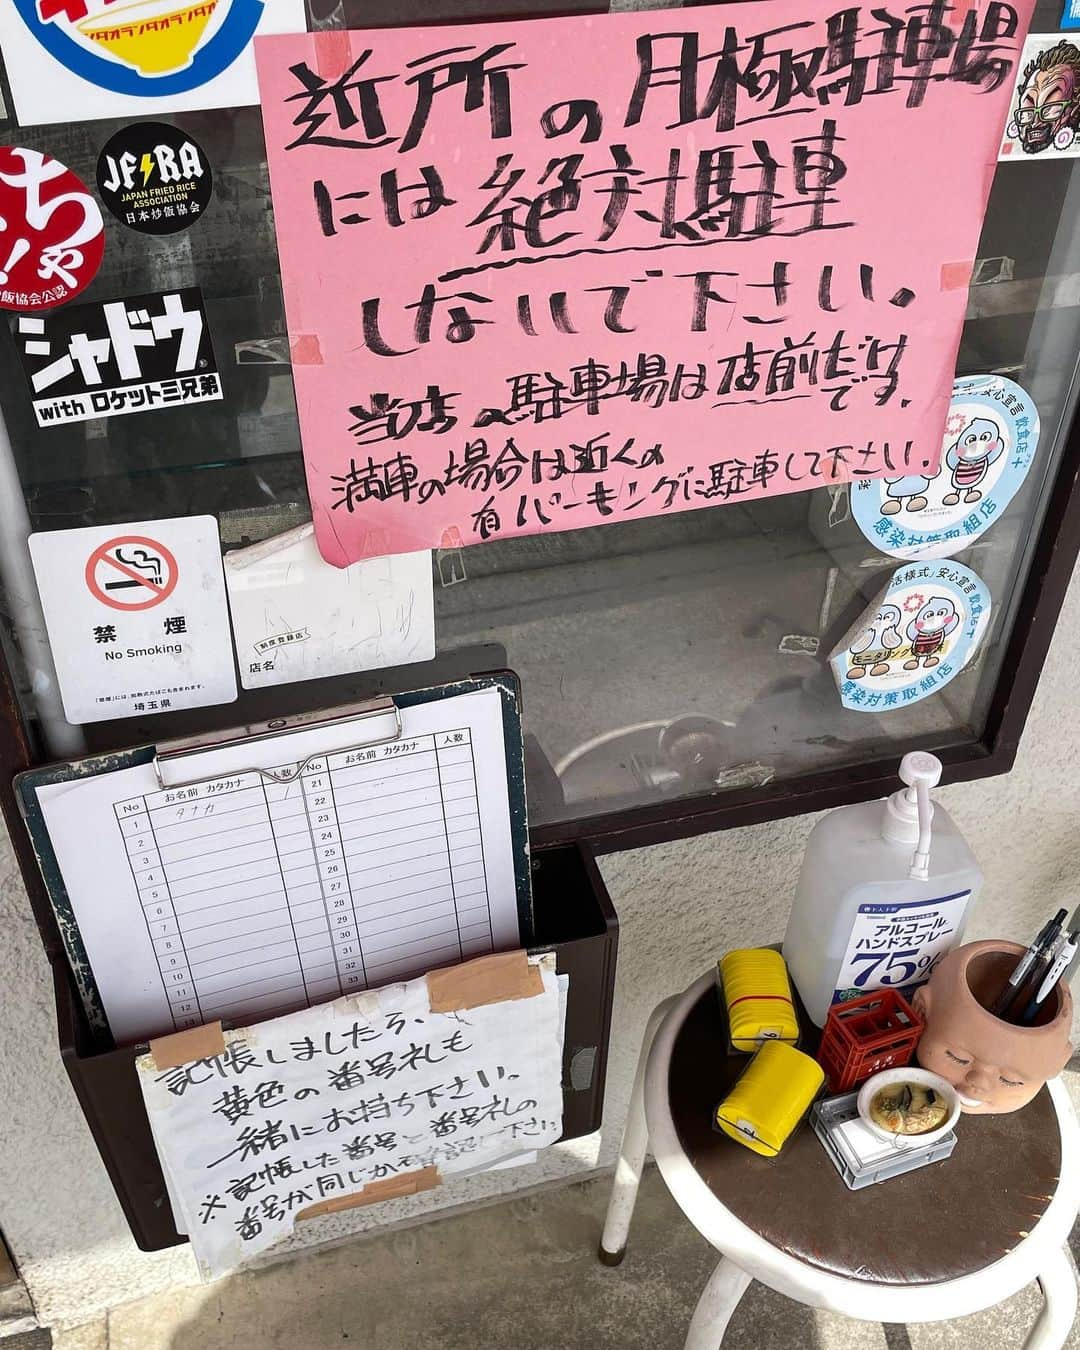 オランダオランダオランダ
近所の月極駐車場
には絶対駐車
しないで下さい。
当店の駐車場は店前だけです。
満車の場合は近くの
有パーキングに駐車して下さい。
JFRA
JAPAN FRIED RICE
ASSOCIATION
日本炒飯協会
ちゃ
飯協会公認
シャドウ
with ロケット三兄弟
禁煙
No Smoking
「禁煙」には、加熱式たばこも含まれます。
埼玉県
制度登録店
店名
安心宣言 飲食店+
感染対策取組店
活様式」安心宣言 飲食店+
モニタリング
感染対策取組店
No お名前 カタカナ 人数 No お名前 カタカナ 人数
1 タナカ 1 21
2 22
3 23
4 24
5 25
6 26
7 27
8 28
9 29
10 30
11 31
12 32
13 33
記帳しましたら、
黄色の番号札も
一緒にお持ち下さい。
※記帳した番号と番号札の
番号が同じか確認して下さい
アルコール
ハンドスプレー
75%